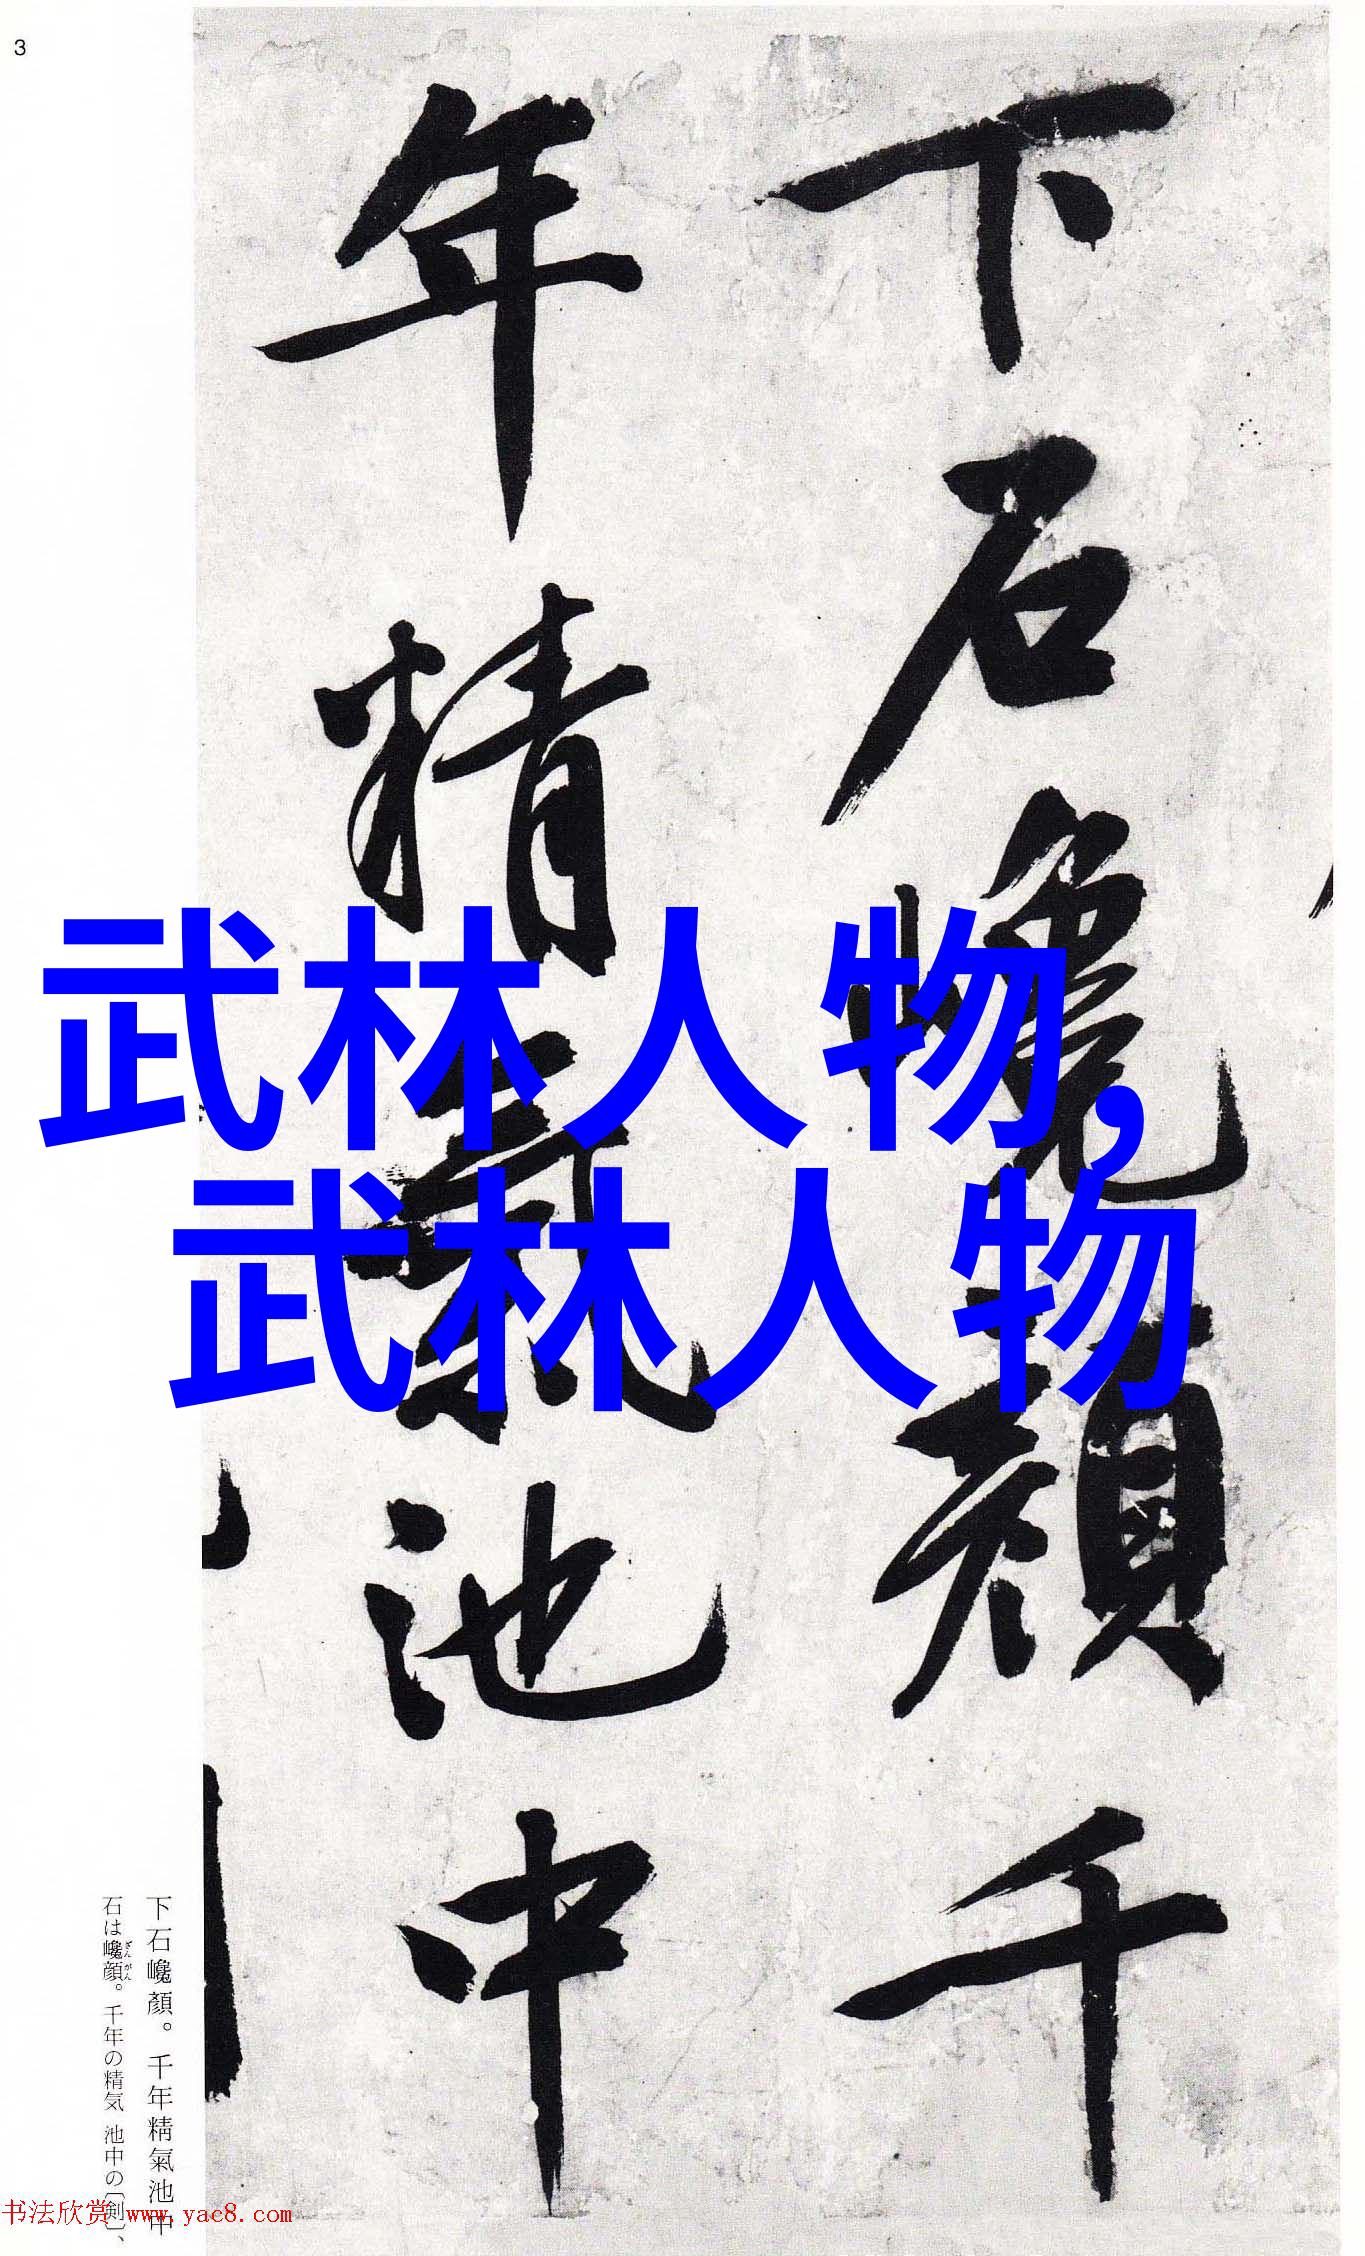 3
下石巉顏千
年精氣池中
武林人物,
武林人物
下石巉顏。千年精氣池中
石は巉顔。千年の精気 池中の〔剣〕、
ざんがん
书法欣赏 www.yac8.com